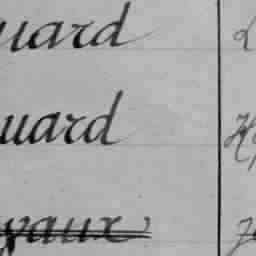 uard
uard
yaux